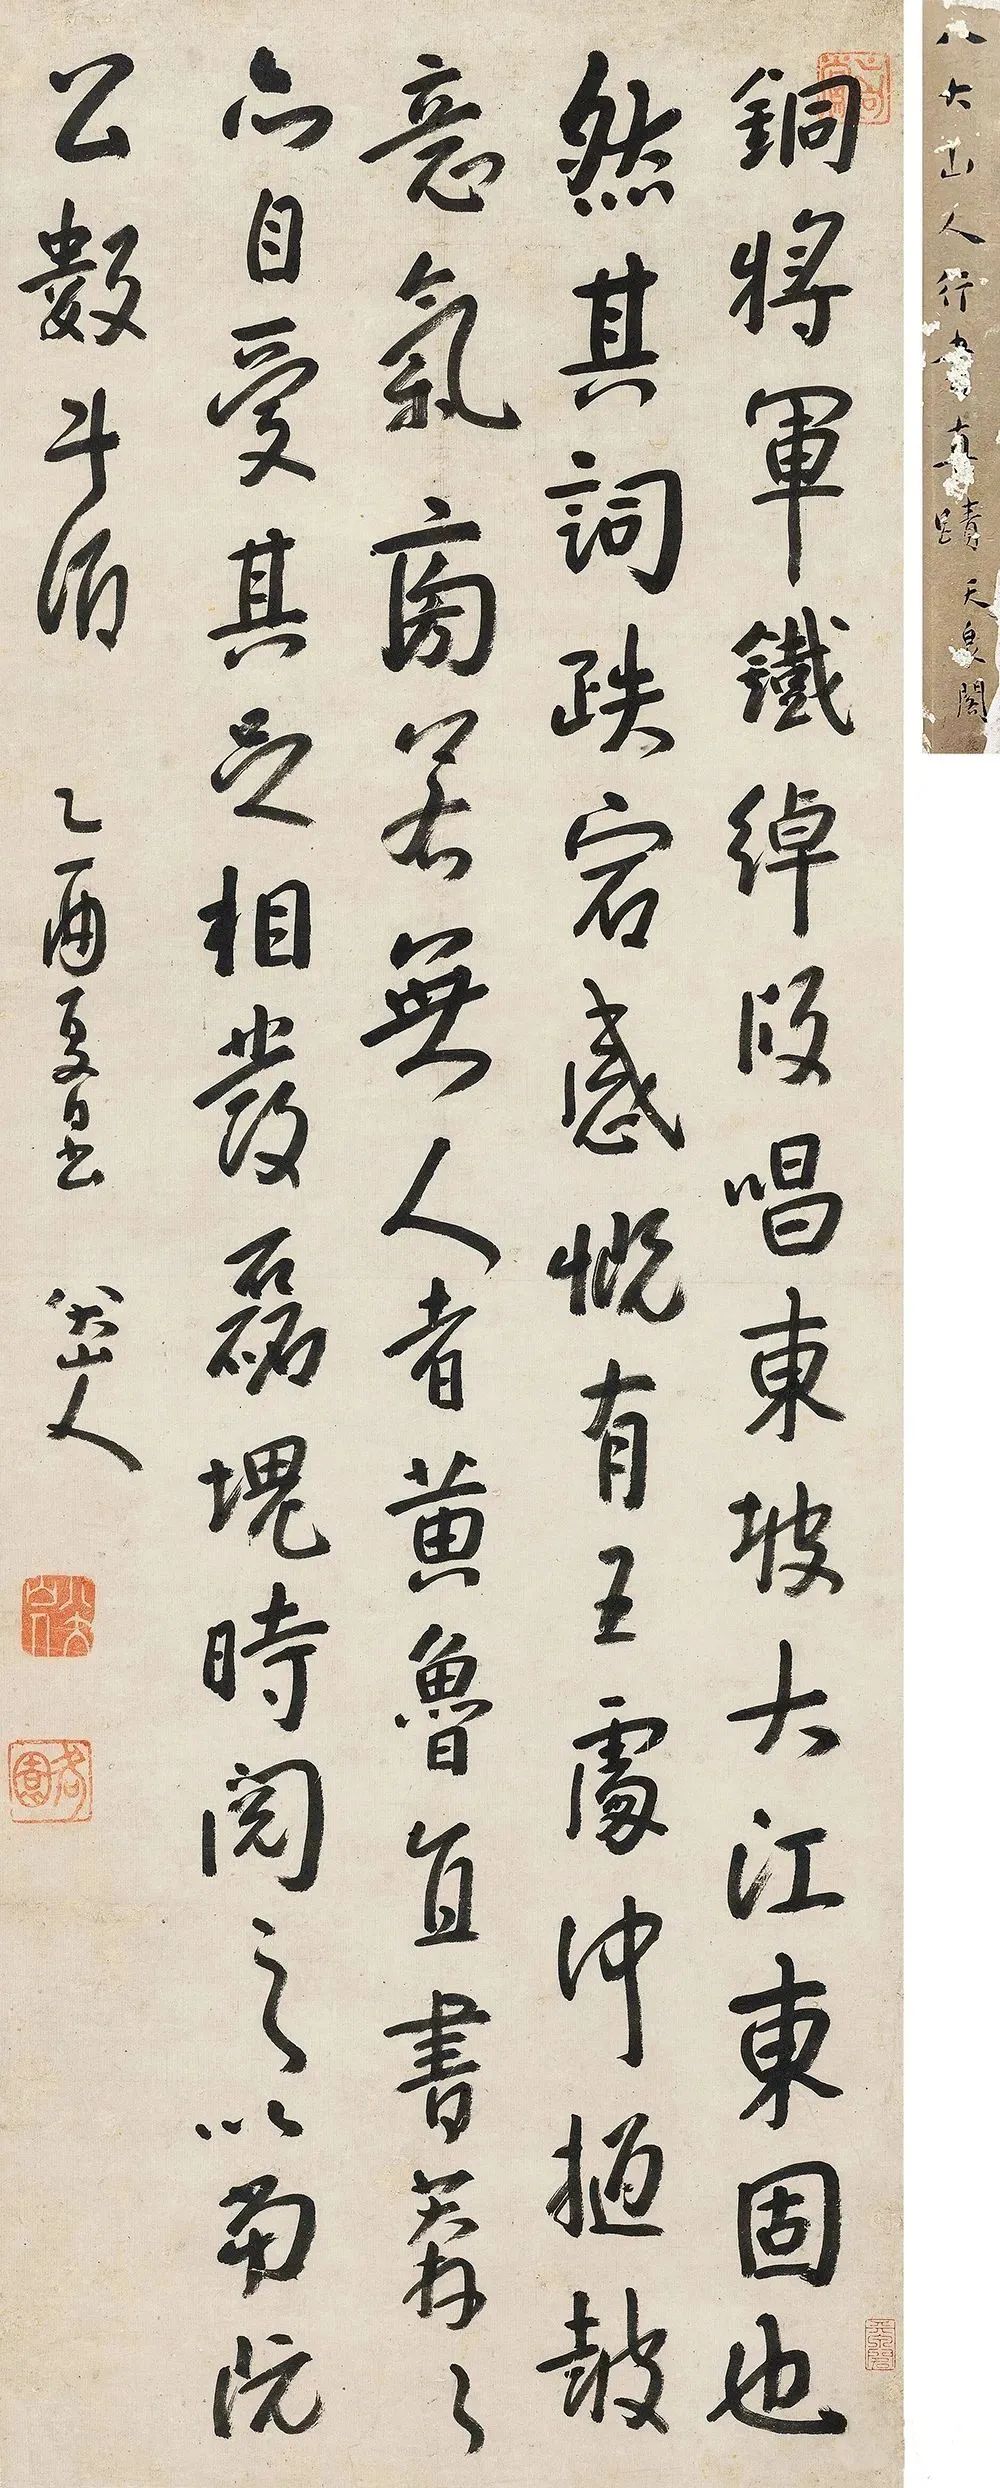 八大山人行書真蹟 天泉閣
銅將軍鐵綽版唱東坡大江東固也
然其詞跌宕感慨有王處仲撾鼓
意氣旁若無人者黃魯直書莽莽
亦自受其足相發磊塊時閱之以當阮
公數斗酒 乙酉夏日書 八大山人
八大山人
何園